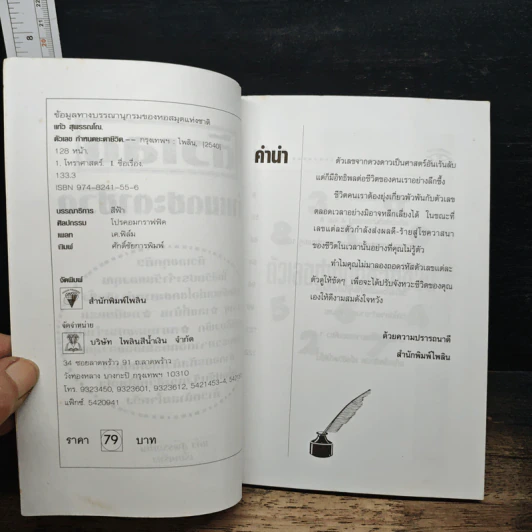 ข้อมูลทางบรรณานุกรมของหอสมุดแห่งชาติ
แก้ว สุพรรณโณ.
ตัวเลข กำหนดชะตาชีวิต.-- กรุงเทพฯ : ไพลิน, [2540]
128 หน้า.
1. โหราศาสตร์. I. ชื่อเรื่อง.
133.3
ISBN 974-8241-55-6
บรรณาธิการ สีฟ้า
ศิลปกรรม โปรคอมกราฟฟิค
เพลท เค.ฟิล์ม
พิมพ์ ศักดิ์ชัยการพิมพ์.
จัดพิมพ์
สำนักพิมพ์ไพลิน
จัดจำหน่าย
บริษัท ไพลินสีน้ำเงิน จำกัด
34 ซอยลาดพร้าว 91 ถ.ลาดพร้าว
วังทองหลาง บางกะปิ กรุงเทพฯ 10310
โทร. 9323450, 9323601, 9323612, 5421453-4,
แฟ็กซ์. 5420941
ราคา 79 บาท
คำนำ
ตัวเลขจากดวงดาวเป็นศาสตร์อันเร้นลับ
แต่ก็มีอิทธิพลต่อชีวิตของคนเราอย่างลึกซึ้ง
ชีวิตคนเราต้องยุ่งเกี่ยวพัวพันกับตัวเลข
ตลอดเวลาอย่างมิอาจหลีกเลี่ยงได้ ในขณะที่
เลขแต่ละตัวกำลังส่งผลดี-ร้ายสู่โชควาสนา
ของชีวิตในเวลานั้นอย่างที่คุณไม่รู้ตัว
ทำไมคุณไม่มาลองถอดรหัสตัวเลขแต่ละ
ตัวดูให้ชัดๆ เพื่อจะได้ปรับจังหวะชีวิตของคุณ
เองให้ดีงามสมดังใจหวัง
ด้วยความปรารถนาดี
สำนักพิมพ์ไพลิน